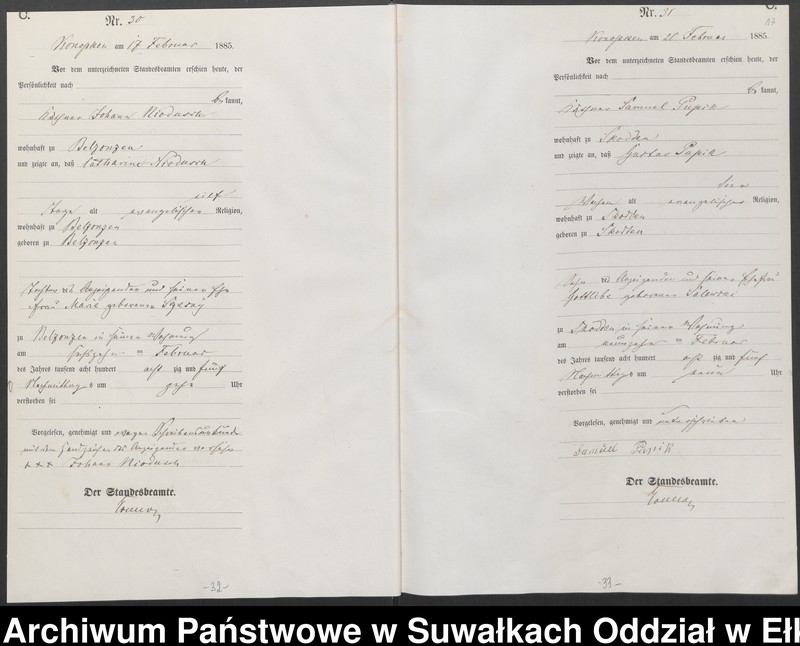 C.
Nr. 30
Konopken am 17 Februar 1885.
Vor dem unterzeichneten Standesbeamten erschien heute, der
Persönlichkeit nach
be kannt,
Käthner Johann Niodusch
wohnhaft zu Belzonzen
und zeigte an, daß Catharine Niodusch
eilf
Tage alt evangelischer Religion,
wohnhaft zu Belzonzen
geboren zu Belzonzen
Tochter des Anzeigenden und seiner Ehe
frau Marie geborenen
zu Belzonzen in seiner Wohnung
am sechszehn ten Februar
des Jahres tausend acht hundert acht zig und fünf
Nachmittags um zehn Uhr
verstorben sei
Vorgelesen, genehmigt und wegen Schreibensunkunde
mit dem Handzeichen des Anzeigenden versehen
+++ Johann Niodusch
Der Standesbeamte.
-32-
C.
17
Nr. 31
Konopken am 20 Februar 1885.
Vor dem unterzeichneten Standesbeamten erschien heute, der
Persönlichkeit nach
be kannt,
Käthner Samuel Pupik
wohnhaft zu Skodden
und zeigte an, daß Gustav Pupik
vier
Wochen alt evangelischer Religion,
wohnhaft zu Skodden
geboren zu Skodden
Sohn des Anzeigenden und seiner Ehefrau
Gottliebe geborenen
zu Skodden in seiner Wohnung
am neunzehn ten Februar
des Jahres tausend acht hundert acht zig und fünf
Nachmittags um neun Uhr
verstorben sei
Vorgelesen, genehmigt und unterschrieben
Samuel Pupik
Der Standesbeamte.
-33-
Archiwum Państwowe w Suwałkach Oddział w Ełk